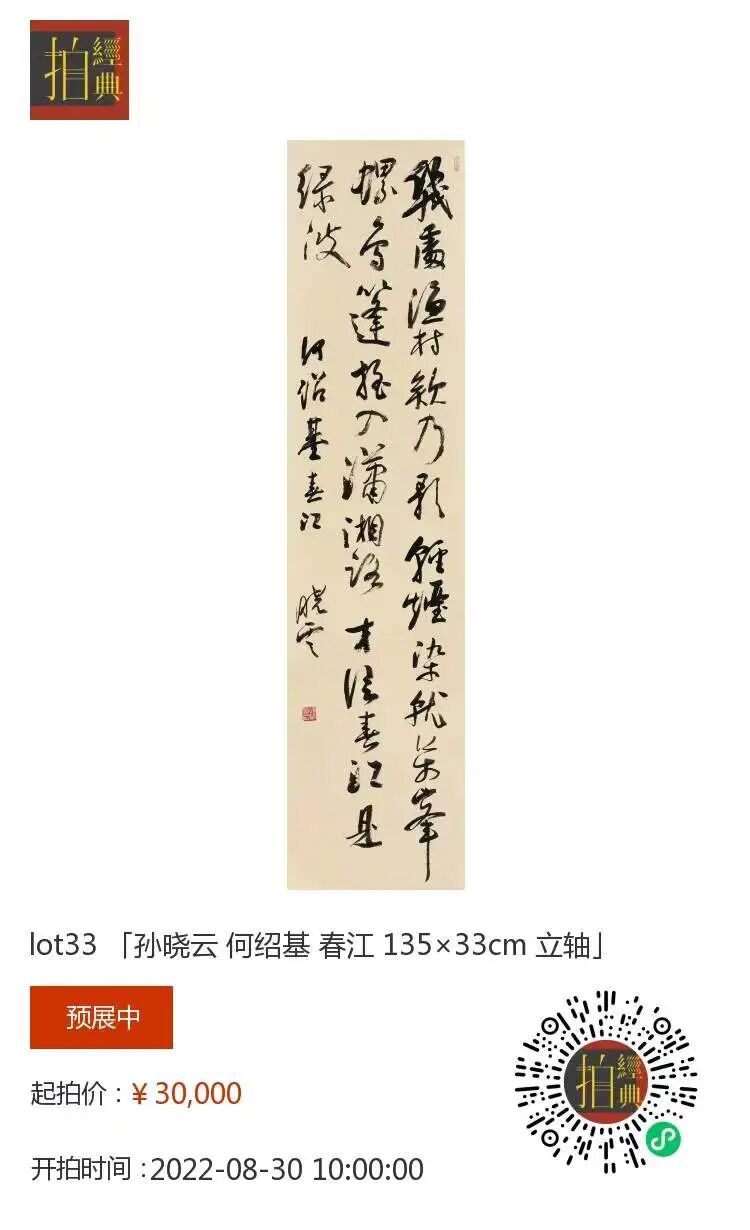 經典拍
幾處漁村欸乃歌輕煙染就峯
螺烏篷摇入瀟湘路才信春江是
绿波
何绍基春江
晓云
lot33 「孙晓云 何绍基 春江 135×33cm 立轴」
预展中
起拍价：¥ 30,000
开拍时间：2022-08-30 10:00:00
經典拍